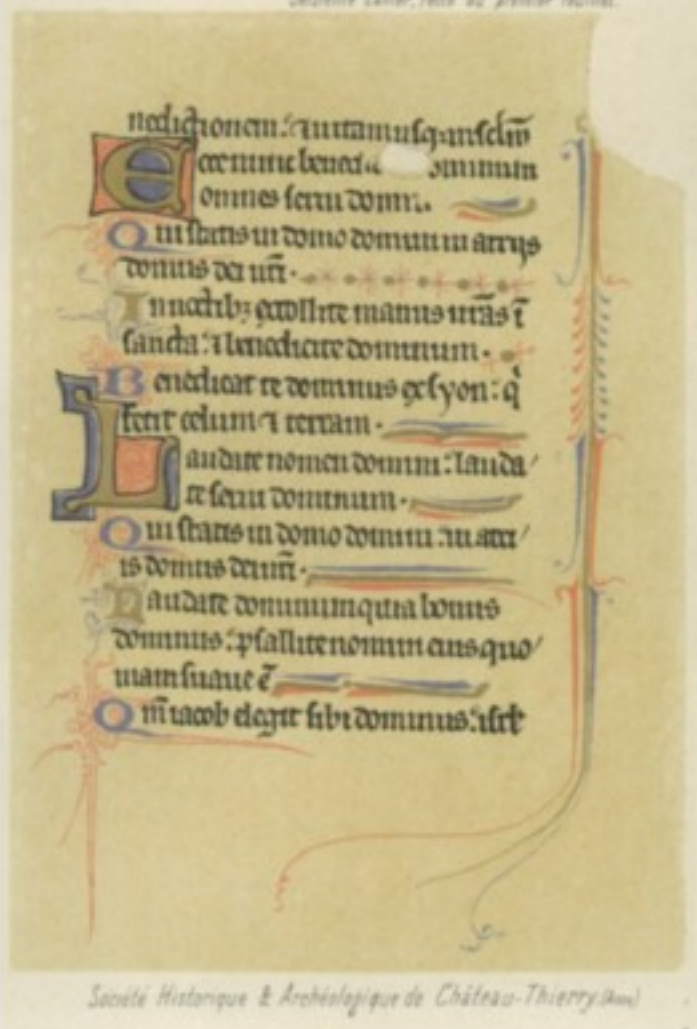 Seizième Cahier, recto du premier feuillet.
nedictionem: ⁊ uitam usq; in seclm̄
Ecce nunc bened ominum
omnes serui domini.
Qui statis in domo domini in atrijs
domus dei nr̄i.
In noctibz extollite manus ur̄as ī
sancta: ⁊ benedicite dominum.
Benedicat te dominus ex syon: q̇
fecit celum ⁊ terram.
Laudate nomen domini: lauda/
te serui dominum.
Qui statis in domo domini: in atri/
is domus dei nr̄i.
Laudate dominum quia bonus
dominus: psallite nomini eius quo/
niam suaue ē
Qm̄ iacob elegit sibi dominus: isrl̄
Société Historique & Archéologique de Château-Thierry (Aisne)